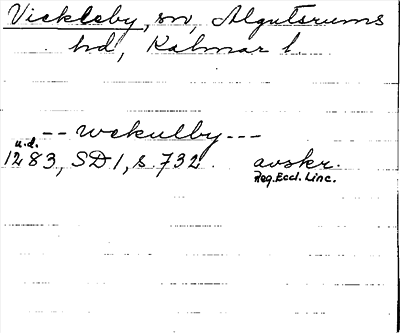 Vickleby, sn, Algutsrums
hd, Kalmar l.
-- wckulby ---
u.d.
1283, SD 1, s. 732. avskr.
Reg. Eccl. Linc.